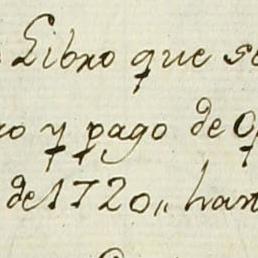 Libro que se
ro y pago de O
de 1720,, has